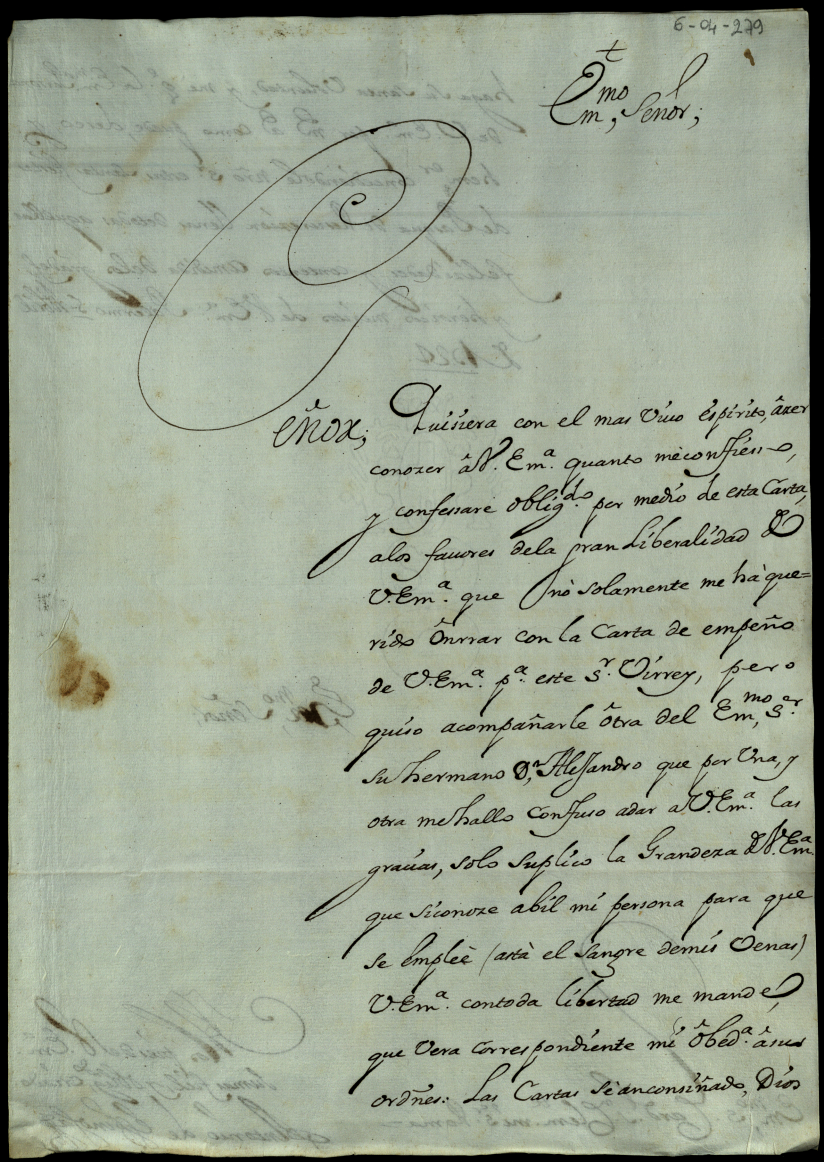 6-04-279
†
Em.mo Señor;
EÑOR; Quisiera con el mas Vivo espirito, âzer
conozer âV. Em.a quanto mèconfiesso,
y confessarè obligdo. por medio de esta Carta,
alos favores dela gran Liberalidad de
V. Em.a que nò solamente me hà que=
rido Ônrrar con la Carta de empeño
de V. Em.a p.a este S.r Virrey, pero
quiso acompañarle ôtra del Em.mo S.or
su hermano D.n Alessandro que por Una, y
otra mehallo Confuso adar aV. Em.a las
gracias, solo suplico la Grandeza de V. Em.a
que siconoze abil mi persona para que
se empleè (astà el sangre demis Venas)
V. Em.a contoda libertad me mande,
que Vera Correspondiente mi Ôbed.a âsus
ordnes: Las Cartas sè anconsiñado, Dios